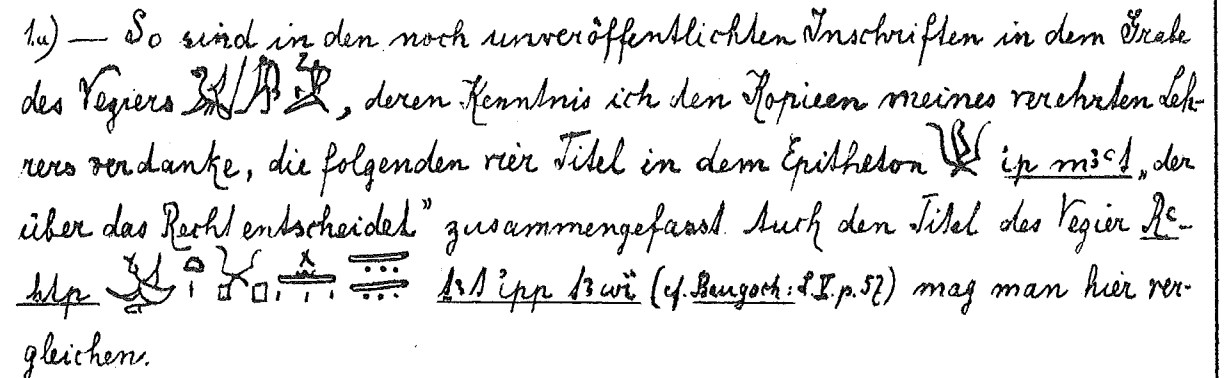 1.a) — So sind in den noch unveröffentlichten Inschriften in dem Grabe
des Veziers , deren Kenntnis ich den Kopieen meines verehrten Leh-
rers verdanke, die folgenden vier Titel in dem Epitheton ip m3ꜥt „der
über das Recht entscheidet” zusammengefasst. Auch den Titel des Vezier Rꜥ-
ḥtp (cf. Brugsch: p. 57) mag man hier ver-
gleichen.